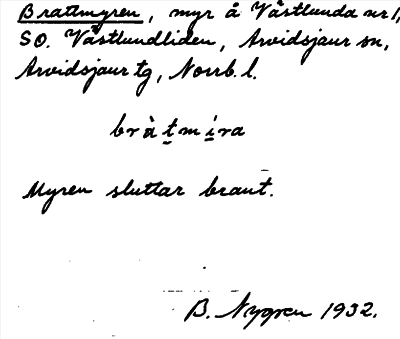 Brattmyren, myr å Västlunda nr 1,
SO. Västlundliden, Arvidsjaur sn,
Arvidsjaur tg, Norrb. l.
bràt̲mi̲ra
Myren sluttar brant.
B. Nygren 1932.